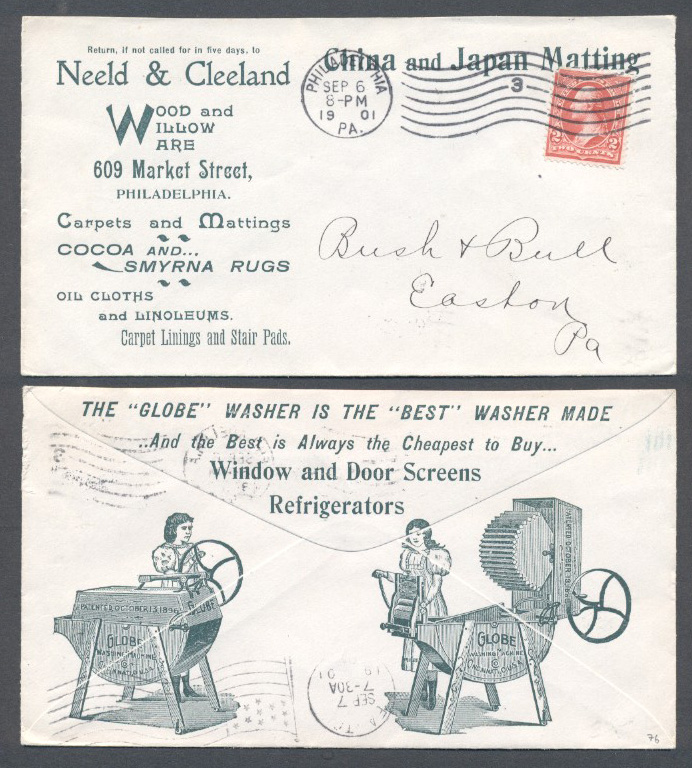 Return, if not called for in five days, to
Neeld & Cleeland
WOOD and
WILLOW
WARE
609 Market Street,
PHILADELPHIA.
Carpets and Mattings
COCOA AND...
SMYRNA RUGS
OIL CLOTHS
and LINOLEUMS.
Carpet Linings and Stair Pads.
China and Japan Matting
PHILADELPHIA
SEP 6
8-PM
19 01
PA.
3
2 2
TWO CENTS
Bush & Bull
Easton
Pa
THE "GLOBE" WASHER IS THE "BEST" WASHER MADE
..And the Best is Always the Cheapest to Buy...
Window and Door Screens
Refrigerators
PATENTED OCTOBER 13 1896
GLOBE
GLOBE
WASHING MACHINE
CINCINNATI
PATENTED OCTOBER
GLOBE
WASHING MACHINE
CINCINNATI
SEP 7
7-30A
76